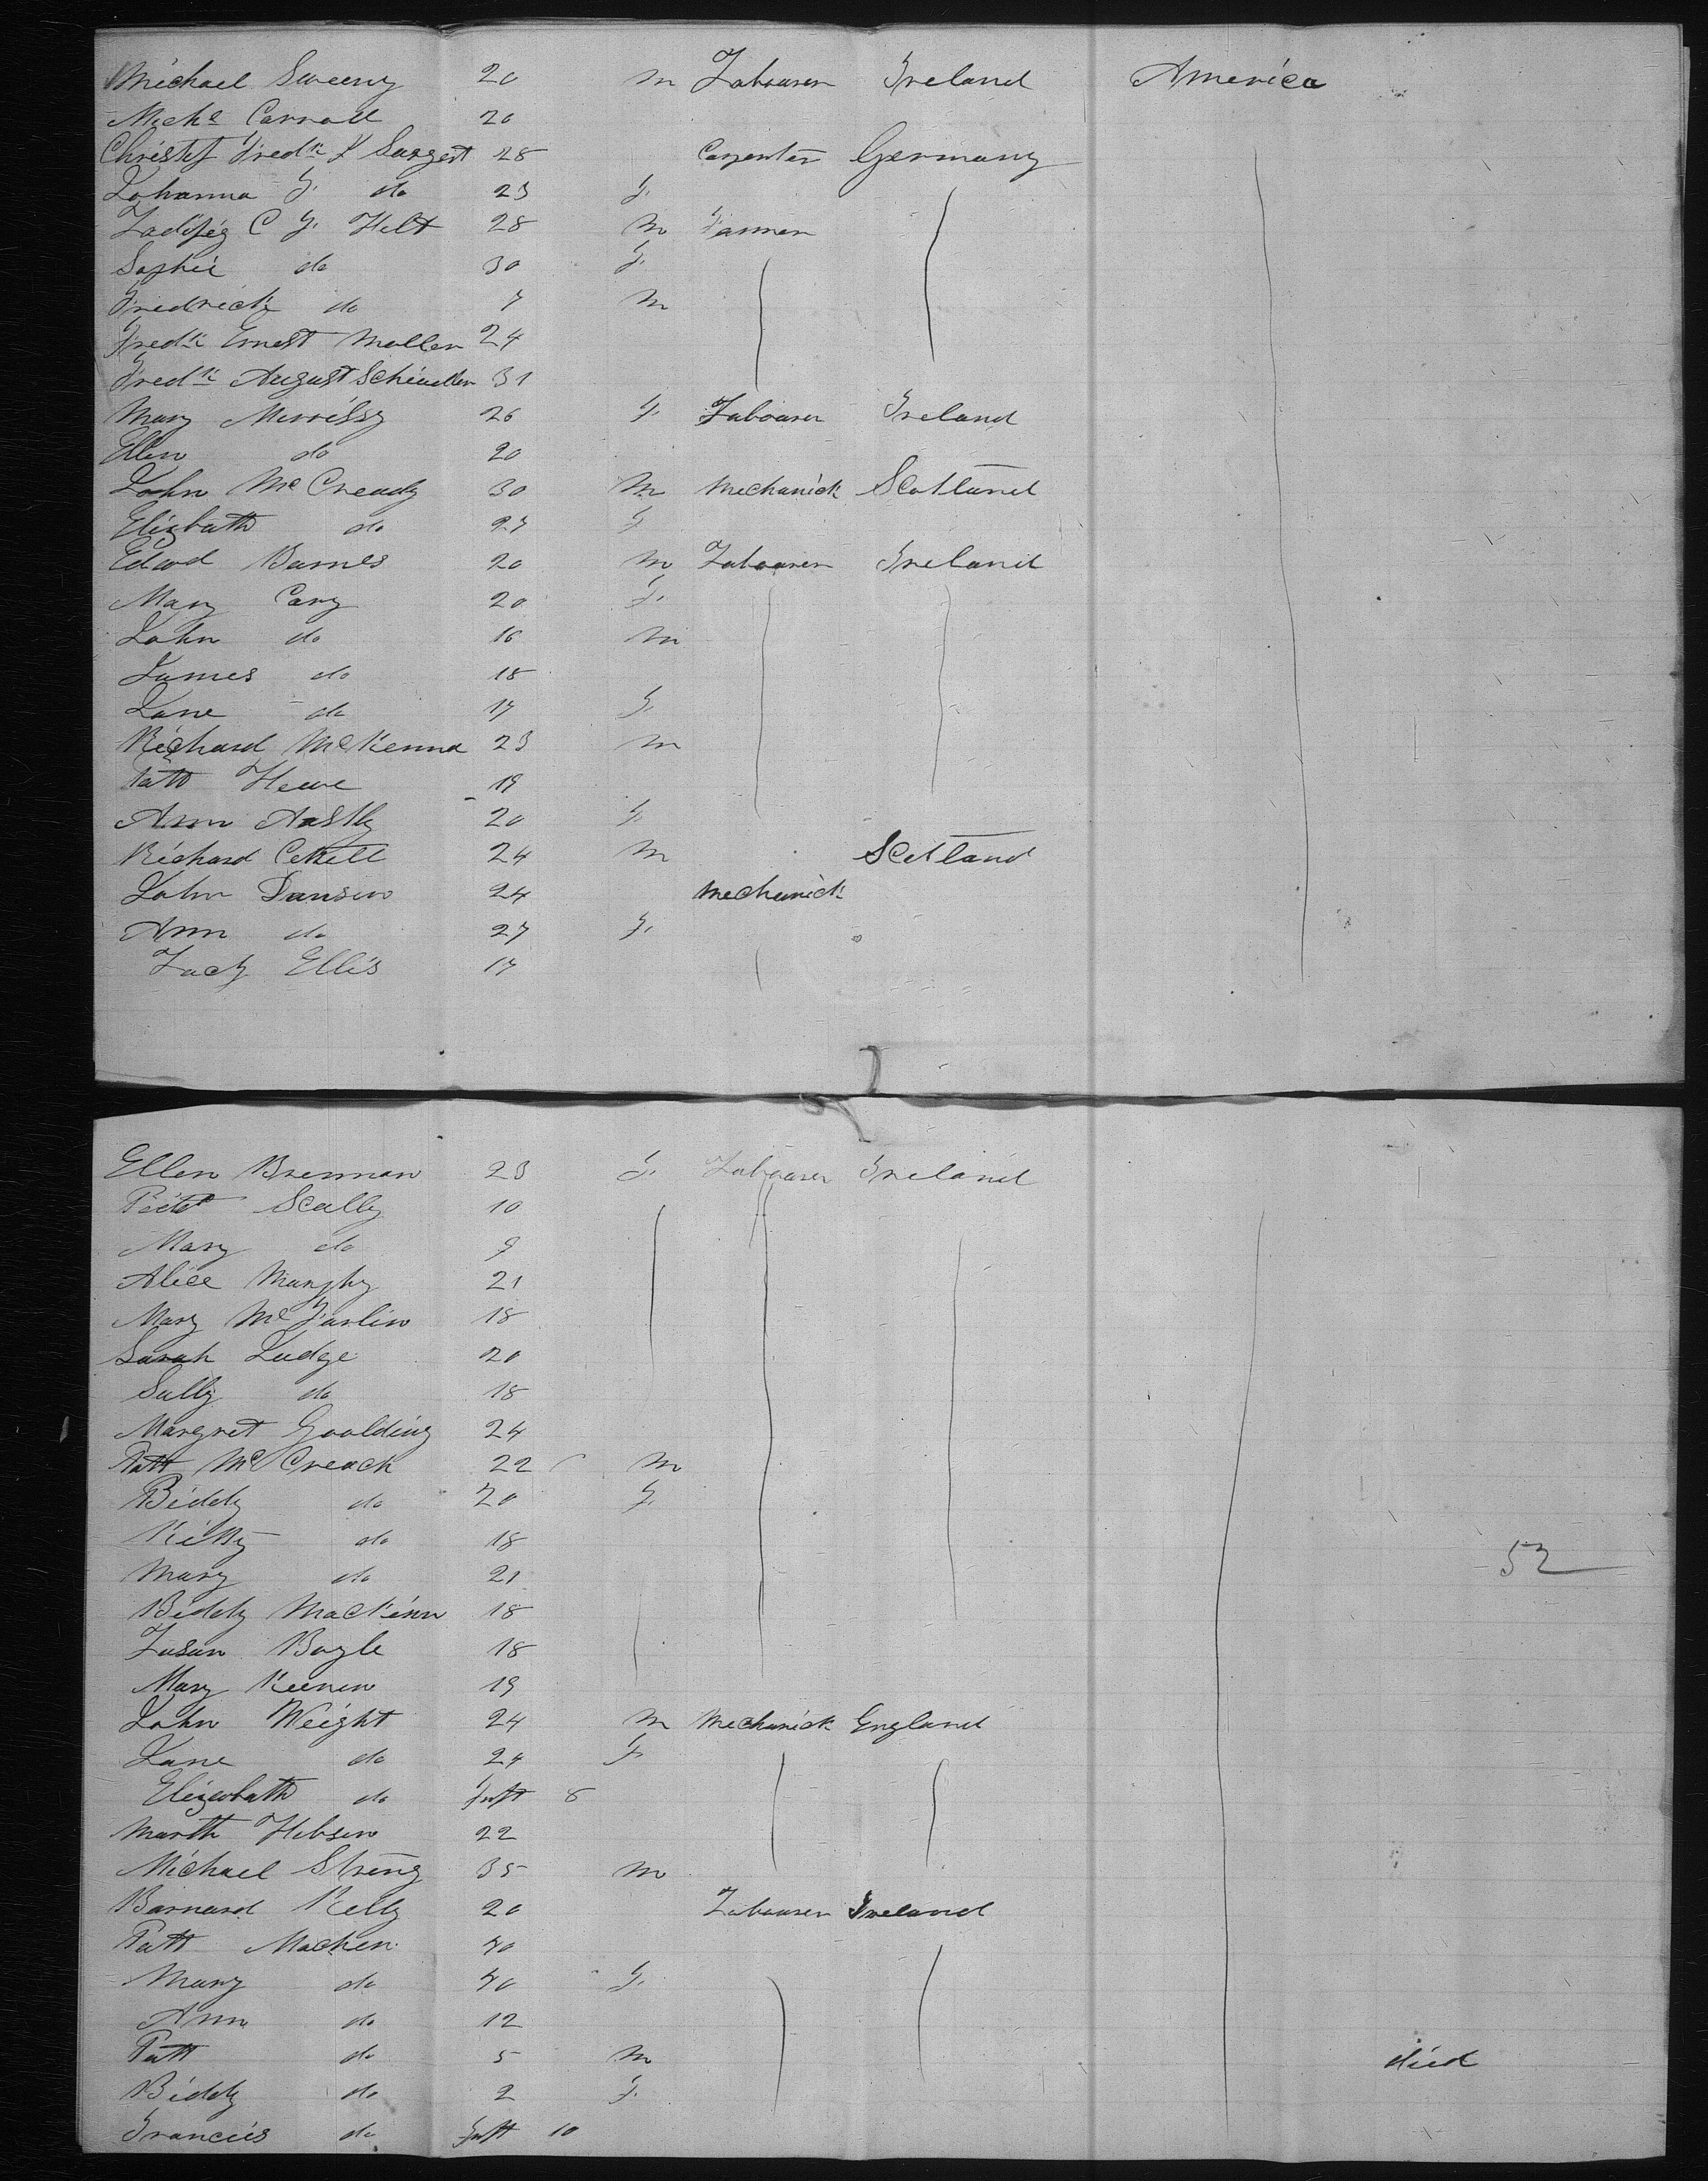 Michael Sweeny 20 m Labourer Ireland America
Michl Carroll 20
Christf Fredk F Sargert 28 Carpenter Germany
Johanna F. do 23 F.
Ludifig C F. Hilt 28 m Farmer
Sophie do 30 F.
Fredrick do 7 m
Fredk Ernest Moller 24
Fredk August Schindler 31
Mary Morrissy 26 F. Labourer Ireland
Ellen do 20
John McCready 30 m Mechanick Scotland
Elizbath do 27 F
Edwd Barnes 20 m Labourer Ireland
Mary Cary 20 F.
John do 16 m
James do 18
Jane do 17 F.
Richard McKenna 23 m
Patt Heue 19
Ann Astly 20 F.
Richard 24 m Scotland
John Dansin 24 Mechanick
Ann do 27 F.
Lucy Ellis 17
Ellen Brennan 23 F. Labourer Ireland
Scally 10
Mary do 9
Alice Murphy 21
Mary McFarlin 18
Sarah Judge 20
Sally do 18
Margret Goolding 24
Patt McCreack 22 m
Biddy do 20 F.
Kitty do 18
Mary do 21
52
Biddy Mackinn 18
Susan Boyle 18
Mary Keenen 19
John Weight 24 m Mechanick England
Jane do 24 F
Elizabath do Inft 8
Marth Hibsen 22
Michael String 35 m
Barnard Kelly 20 Labourer Ireland
Patt Macken 40
Mary do 40 F.
Ann do 12
Patt do 5 m died
Biddy do 2 F.
Francies do Inft 10